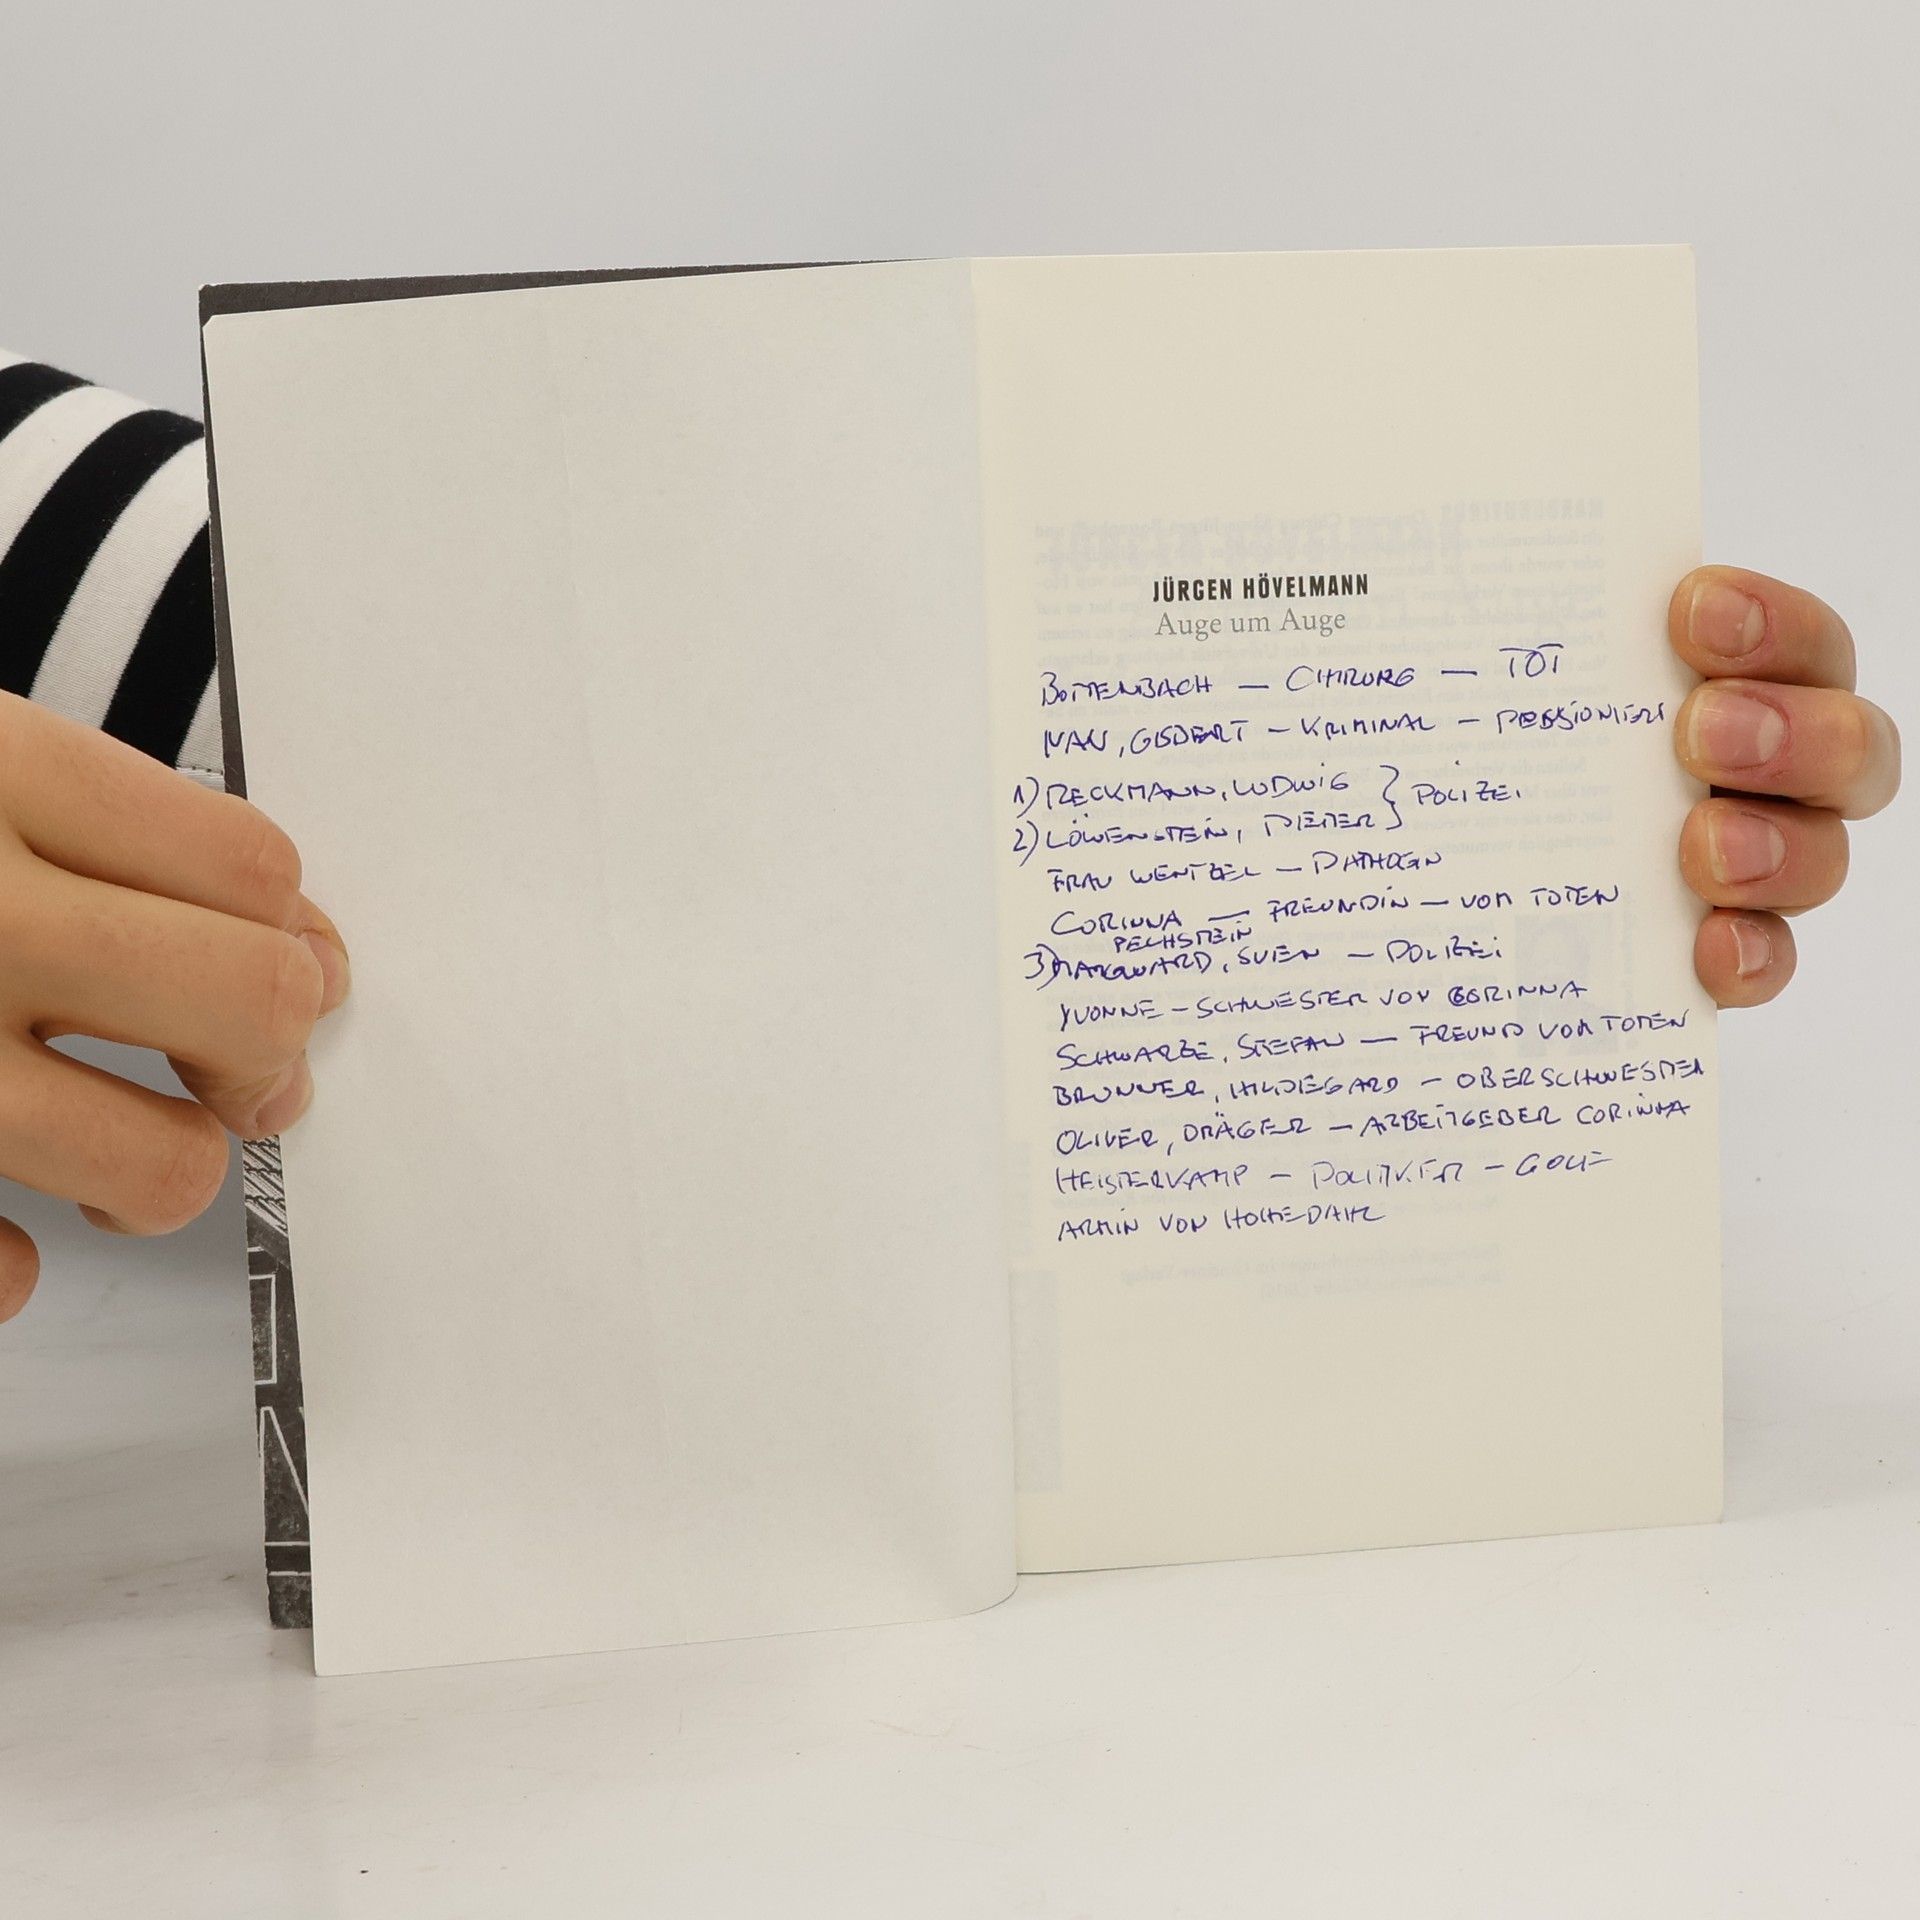 JÜRGEN HÖVELMANN
Auge um Auge
BOTTENBACH — CHIRURG — TOT
NAU, GISBERT – KRIMINAL – PENSIONIERT
1) RECKMANN, LUDWIG } POLIZEI
2) LÖWENSTEIN, DIETER }
FRAU WENTZEL — PATHOGIN
CORINNA — FREUNDIN — VOM TOTEN
PECHSTEIN
3) MARQUARD, SVEN — POLIZEI
YVONNE – SCHWESTER VON CORINNA
SCHWARZE, STEFAN — FREUND VOM TOTEN
BRUNNER, HILDEGARD – OBERSCHWESTER
OLIVER, DRÄGER – ARBEITGEBER CORINNA
HEISTERKAMP – POLITIKER – GOLF
ARMIN VON HOHEDAHL